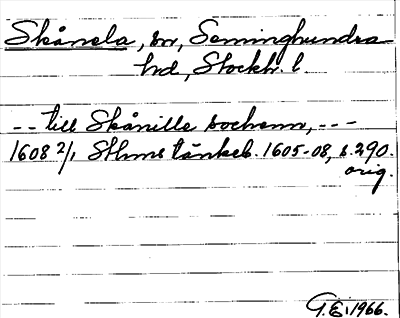 Skånela, sn, Seminghundra
hd, Stockh. l.
-- till Skånille sochenn, ---
1608 2/1 Sthms tänkeb. 1605-08, s. 290.
orig.
G.E. 1966.